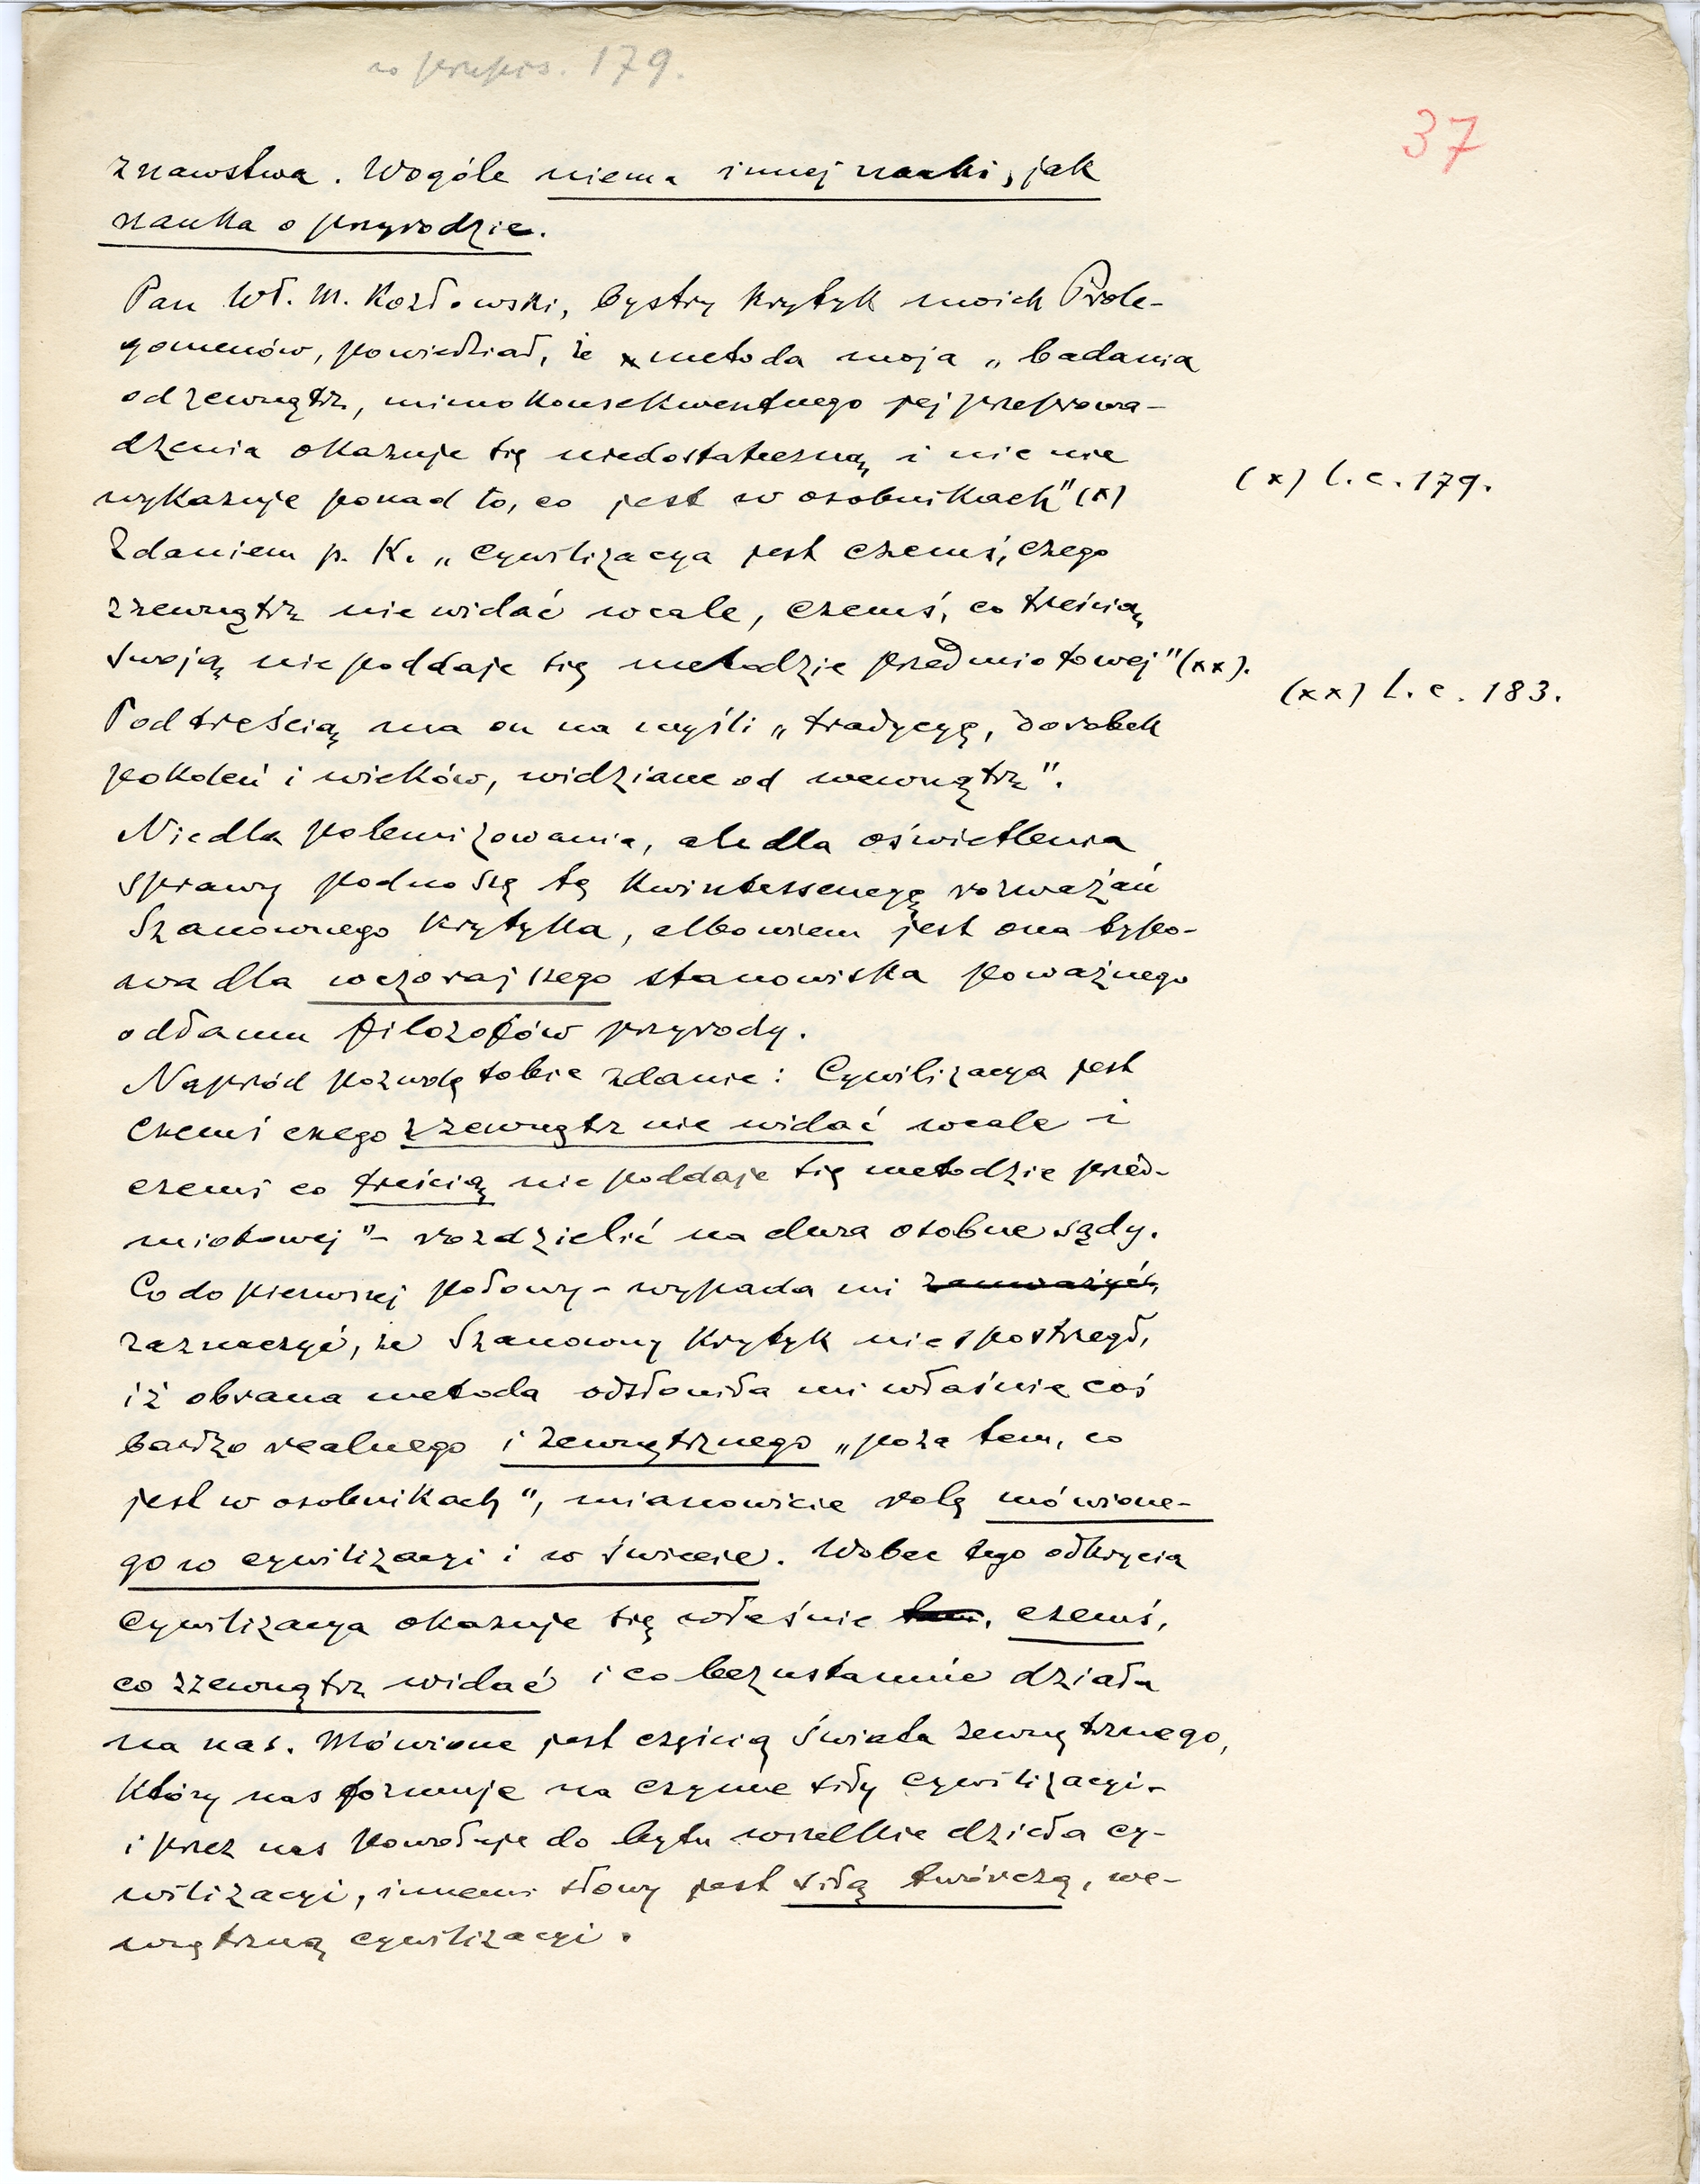 w przepis. 179.
37
znawstwa. Wogóle niema innej nauki, jak
nauka o przyrodzie.
Pan Wł. M. Kozłowski, bystry krytyk moich Prole-
gomenów, powiedział, że metoda moja „badania
od zewnątrz, mimo konsekwentnego jej przeprowa-
dzenia okazuje się niedostateczną i nic nie
wykazuje ponad to, co jest w osobnikach" (x)
(x) l. c. 179.
Zdaniem p. K. „Cywilizacya jest czemś, czego
zzewnątrz nie widać wcale, czemś, co treścią
swoją nie poddaje się metodzie przedmiotowej" (xx).
(xx) l. c. 183.
Pod treścią ma on na myśli „tradycyę, dorobek
pokoleń i wieków, widziane od wewnątrz".
Nie dla polemizowania, ale dla oświetlenia
sprawy podnoszę tę kwintessencyę rozważań
Szanownego Krytyka, albowiem jest ona typo-
wa dla wczorajszego stanowiska poważnego
odłamu filozofów przyrody.
Naprzód pozwolę sobie zdanie: Cywilizacya jest
czemś czego zzewnątrz nie widać wcale i
czemś co treścią nie poddaje się metodzie przed-
miotowej" – rozdzielić na dwa osobne sądy.
Co do pierwszej połowy – wypada mi zauważyć,
zaznaczyć, że Szanowny Krytyk nie spostrzegł,
iż obrana metoda odsłoniła mi właśnie coś
bardzo realnego i zewnętrznego „poza tem, co
jest w osobnikach", mianowicie rolę mówione-
go w cywilizacyi i w świecie. Wobec tego odkrycia
Cywilizacya okazuje się właśnie tem, czemś,
co zzewnątrz widać i co bezustannie działa
na nas. Mówione jest częścią świata zewnętrznego,
który nas formuje na czynne siły cywilizacyi –
i przez nas powołuje do bytu wszelkie dzieła cy-
wilizacyi, innemi słowy jest siłą twórczą, we-
wnętrzną cywilizacyi.